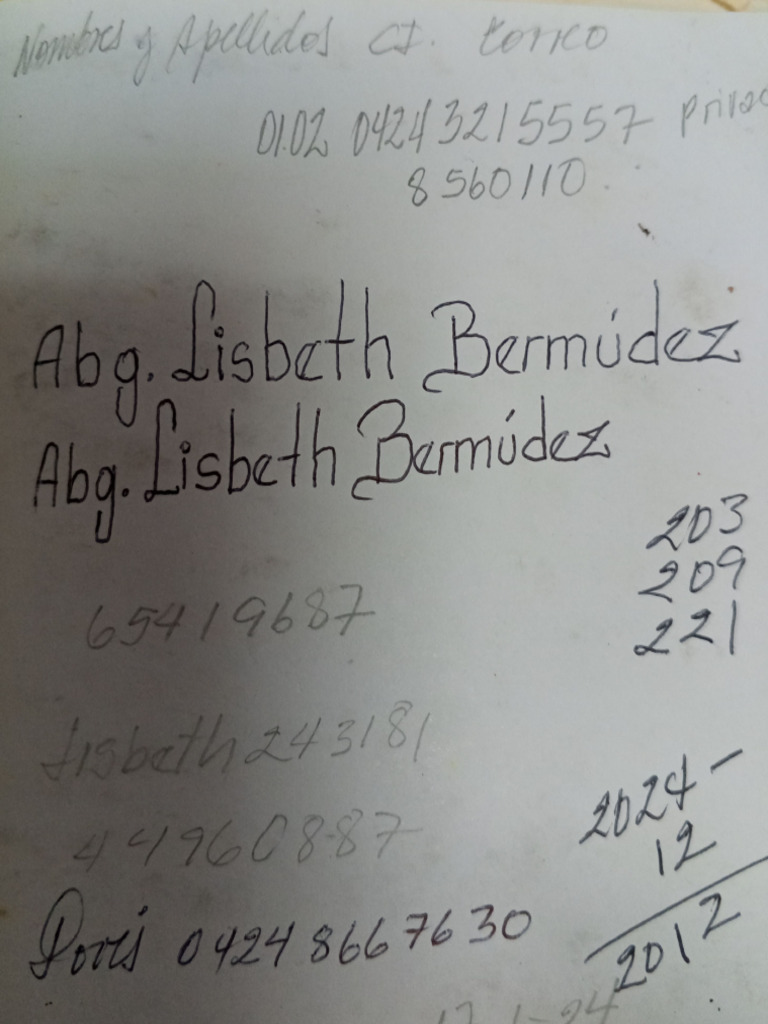 Nombres y Apellidos CI. torico
01.02 04243215557 priva
8560110
Abg. Lisbeth Bermúdez
Abg. Lisbeth Bermúdez
203
209
221
65419687
Lisbeth243181
44960887
2024-
12
2012
04248667630